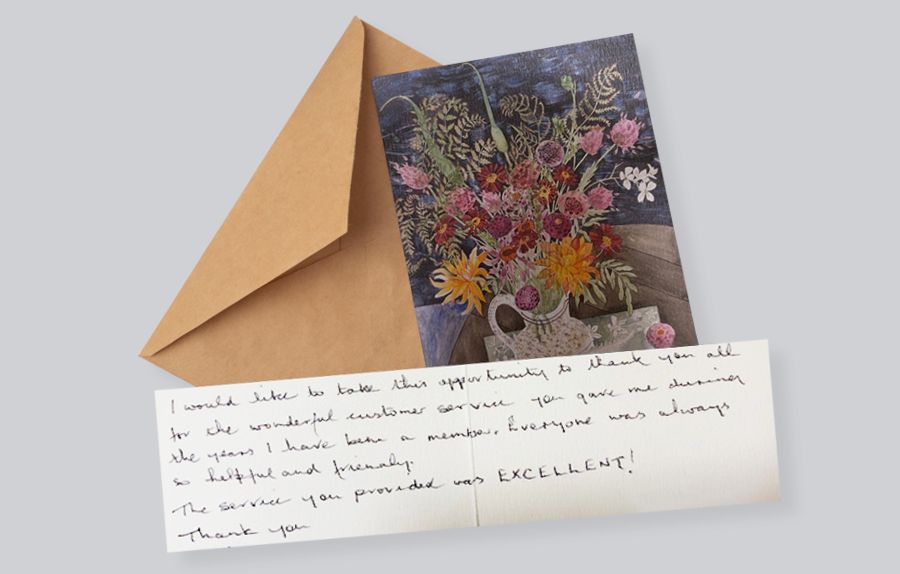 I would like to take this opportunity to thank you all
for the wonderful customer service you gave me during
the years I have been a member. Everyone was always
so helpful and friendly.
The service you provided was EXCELLENT!
Thank you